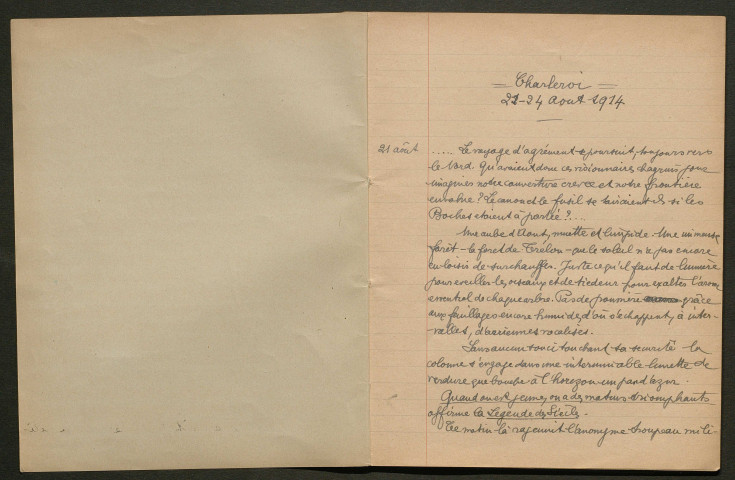 = Charleroi =
21-24 Août 1914
21 août
..... Le voyage d'agrément se poursuit, toujours vers
le Nord. Qu'avaient donc ces visionnaires chagrins pour
imaginer notre couverture crevée et notre frontière
envahie? Le canon et le fusil se tairaient-ils si les
Boches étaient à portée?....
Une aube d'Août, muette et limpide. Une immense
forêt - la forêt de Trélon - que le soleil n'a pas encore
eu loisir de surchauffer. Juste ce qu'il faut de lumière
pour éveiller les oiseaux et de tiédeur pour exalter l'arome
essentiel de chaque arbre. Pas de poussière grâce
aux feuillages encore humides d'où s'échappent, à inter-
valles, d'aériennes vocalises.
Sans aucun souci touchant sa sécurité la
colonne s'engage dans une interminable lunette de
verdure que bouche à l'horizon un pan d'azur.
Quand on est jeune, on a des matins triomphants
affirme la Légende des Siècles.
Ce matin-là rajeunit l'anonyme troupeau mili-